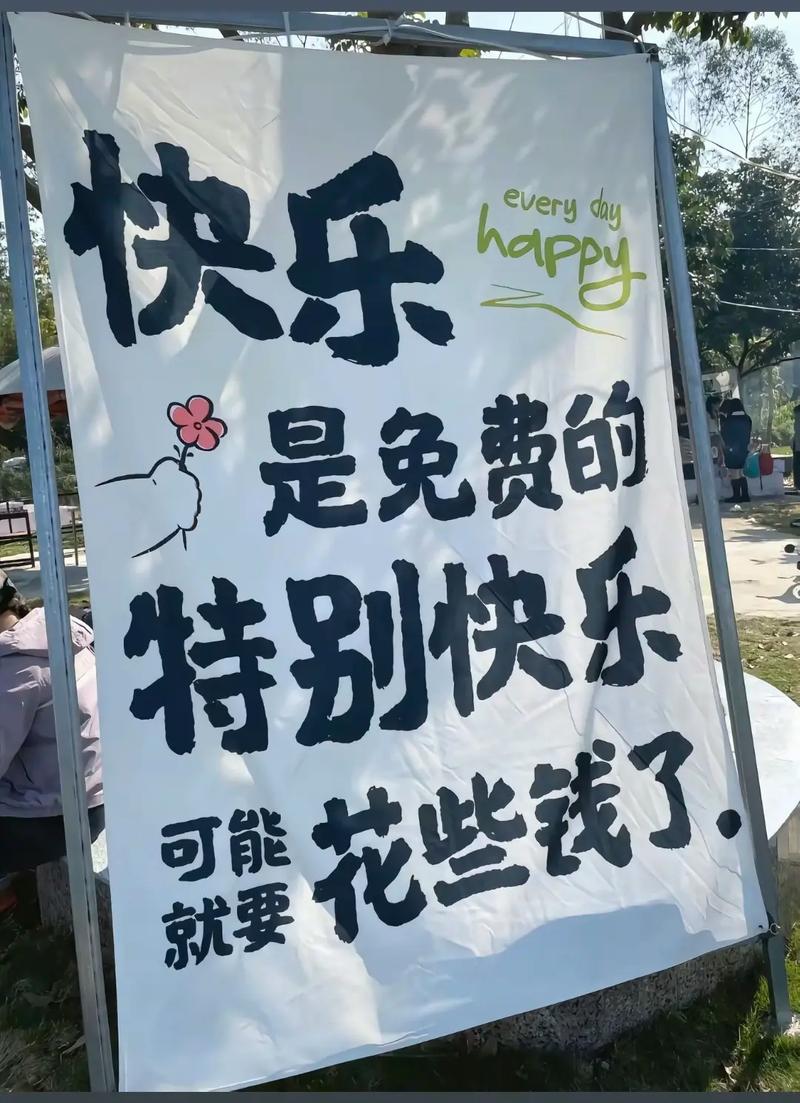 快乐
every day
happy
是免费的
特别快乐
可能
就要
花些钱了.